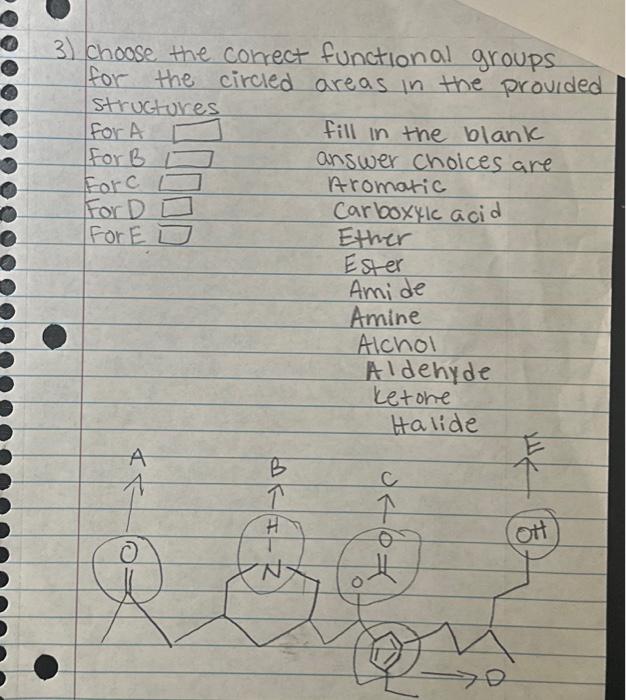 3) Choose the correct functional groups
for the circled areas in the provided
structures
For A
fill in the blank
For B
answer choices are
For C
Aromatic
For D
Carboxylic acid
For E
Ether
Ester
Amide
Amine
Alchol
Aldehyde
Ketone
Halide
A
B
C
E
O
H
N
O
O
OH
D